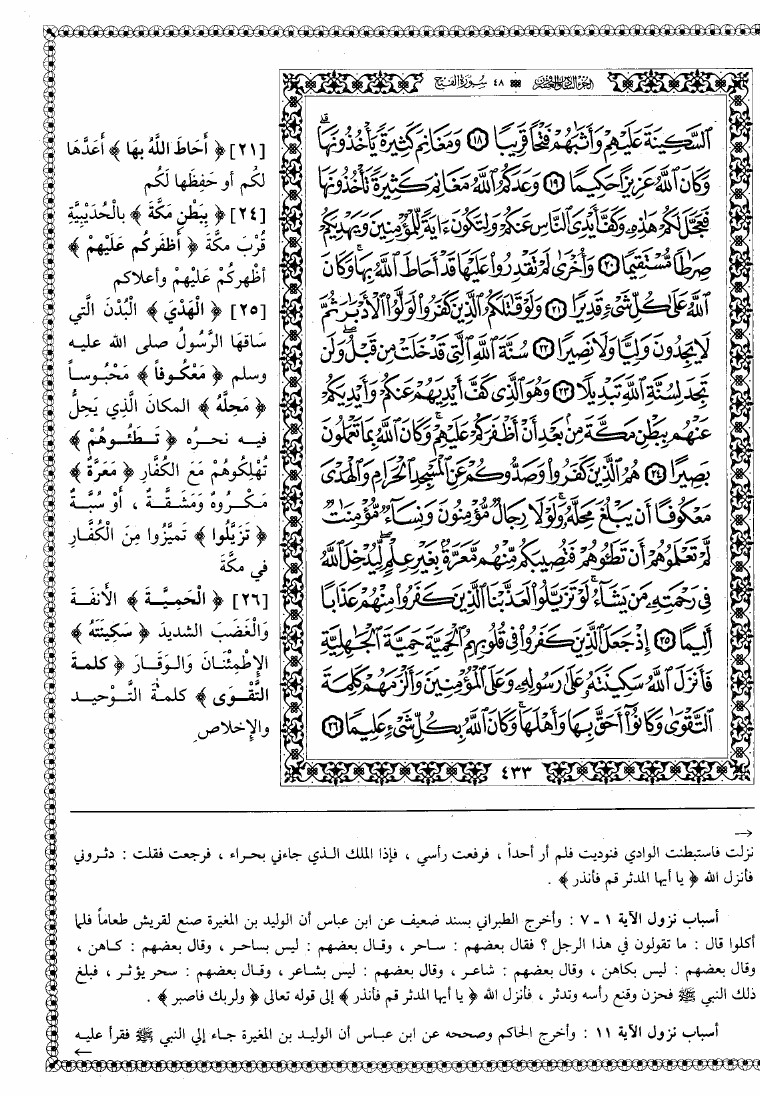 ٤٨ سورة الفتح
الجزء السادس والعشرون
السَّكِينَةَ عَلَيْهِمْ وَأَثَٰبَهُمْ فَتْحًا قَرِيبًا ١٨ وَمَغَانِمَ كَثِيرَةً يَأْخُذُونَهَا
وَكَانَ اللَّهُ عَزِيزًا حَكِيمًا ١٩ وَعَدَكُمُ اللَّهُ مَغَانِمَ كَثِيرَةً تَأْخُذُونَهَا
فَعَجَّلَ لَكُمْ هَٰذِهِ وَكَفَّ أَيْدِيَ النَّاسِ عَنكُمْ وَلِتَكُونَ ءَايَةً لِّلْمُؤْمِنِينَ وَيَهْدِيَكُمْ
صِرَٰطًا مُّسْتَقِيمًا ٢٠ وَأُخْرَىٰ لَمْ تَقْدِرُوا عَلَيْهَا قَدْ أَحَاطَ اللَّهُ بِهَا ۚ وَكَانَ
اللَّهُ عَلَىٰ كُلِّ شَيْءٍ قَدِيرًا ٢١ وَلَوْ قَٰتَلَكُمُ الَّذِينَ كَفَرُوا لَوَلَّوُا الْأَدْبَٰرَ ثُمَّ
لَا يَجِدُونَ وَلِيًّا وَلَا نَصِيرًا ٢٢ سُنَّةَ اللَّهِ الَّتِي قَدْ خَلَتْ مِن قَبْلُ ۖ وَلَن
تَجِدَ لِسُنَّةِ اللَّهِ تَبْدِيلًا ٢٣ وَهُوَ الَّذِي كَفَّ أَيْدِيَهُمْ عَنكُمْ وَأَيْدِيَكُمْ
عَنْهُم بِبَطْنِ مَكَّةَ مِنۢ بَعْدِ أَنْ أَظْفَرَكُمْ عَلَيْهِمْ ۚ وَكَانَ اللَّهُ بِمَا تَعْمَلُونَ
بَصِيرًا ٢٤ هُمُ الَّذِينَ كَفَرُوا وَصَدُّوكُمْ عَنِ الْمَسْجِدِ الْحَرَامِ وَالْهَدْيَ
مَعْكُوفًا أَن يَبْلُغَ مَحِلَّهُ ۚ وَلَوْلَا رِجَالٌ مُّؤْمِنُونَ وَنِسَاءٌ مُّؤْمِنَٰتٌ
لَّمْ تَعْلَمُوهُمْ أَن تَطَـُٔوهُمْ فَتُصِيبَكُم مِّنْهُم مَّعَرَّةٌۢ بِغَيْرِ عِلْمٍ ۖ لِّيُدْخِلَ اللَّهُ
فِي رَحْمَتِهِ مَن يَشَاءُ ۚ لَوْ تَزَيَّلُوا لَعَذَّبْنَا الَّذِينَ كَفَرُوا مِنْهُمْ عَذَابًا
أَلِيمًا ٢٥ إِذْ جَعَلَ الَّذِينَ كَفَرُوا فِي قُلُوبِهِمُ الْحَمِيَّةَ حَمِيَّةَ الْجَٰهِلِيَّةِ
فَأَنزَلَ اللَّهُ سَكِينَتَهُ عَلَىٰ رَسُولِهِ وَعَلَى الْمُؤْمِنِينَ وَأَلْزَمَهُمْ كَلِمَةَ
التَّقْوَىٰ وَكَانُوا أَحَقَّ بِهَا وَأَهْلَهَا ۚ وَكَانَ اللَّهُ بِكُلِّ شَيْءٍ عَلِيمًا ٢٦
٤٣٣
[٢١] ﴿ أَحَاطَ اللَّهُ بِهَا ﴾ أَعَدَّهَا
لَكُم أو حَفِظَها لَكُم
[٢٤] ﴿ بِبَطْنِ مَكَّةَ ﴾ بالْحُدَيْبِيَّةِ
قُرْبَ مكَّةَ ﴿ أَظْفَركُم عَلَيْهِمْ ﴾
أظْهركُمْ عَلَيْهِمْ وأعلاكم
[٢٥] ﴿ الْهَدْيَ ﴾ الْبُدْنَ الَّتي
سَاقَهَا الرَّسُولُ صلى الله عليه
وسلم ﴿ مَعْكُوفاً ﴾ مَحْبُوساً
﴿ مَحِلَّهُ ﴾ المكانَ الَّذي يَحِلُّ
فيه نحرُه ﴿ تَطَئُوهُمْ ﴾
تُهْلِكُوهُمْ مَعَ الكُفَّارِ ﴿ مَعَرَّةٌ ﴾
مَكْرُوهٌ وَمَشَقَّةٌ ، أَوْ سُبَّةٌ
﴿ تَزَيَّلُوا ﴾ تَميَّزُوا مِنَ الْكُفَّارِ
في مكَّةَ
[٢٦] ﴿ الْحَمِيَّةَ ﴾ الأنفَةَ
وَالْغَضَبَ الشديدَ ﴿ سَكِينَتَهُ ﴾
الإِطْمِئْنَانَ وَالوَقَارَ ﴿ كلمةَ
التَّقْوَى ﴾ كلمةَ التَّوْحيد
والإخلاص
نزلت فاستبطنت الوادي فنوديت فلم أر أحداً ، فرفعت رأسي ، فإذا الملك الذي جاءني بحراء ، فرجعت فقلت : دثروني
فأنزل الله ﴿ يا أيها المدثر قم فأنذر ﴾ .
أسباب نزول الآية ١ ـ ٧ : وأخرج الطبراني بسند ضعيف عن ابن عباس أن الوليد بن المغيرة صنع لقريش طعاماً فلما
أكلوا قال : ما تقولون في هذا الرجل ؟ فقال بعضهم : ساحر ، وقال بعضهم : ليس بساحر ، وقال بعضهم : كاهن ،
وقال بعضهم : ليس بكاهن ، وقال بعضهم : شاعر ، وقال بعضهم : ليس بشاعر ، وقال بعضهم : سحر يؤثر ، فبلغ
ذلك النبي ﷺ فحزن وقنع رأسه وتدثر ، فأنزل الله ﴿ يا أيها المدثر قم فأنذر ﴾ إلى قوله تعالى ﴿ ولربك فاصبر ﴾ .
أسباب نزول الآية ١١ : وأخرج الحاكم وصححه عن ابن عباس أن الوليد بن المغيرة جاء إلي النبي ﷺ فقرأ عليه